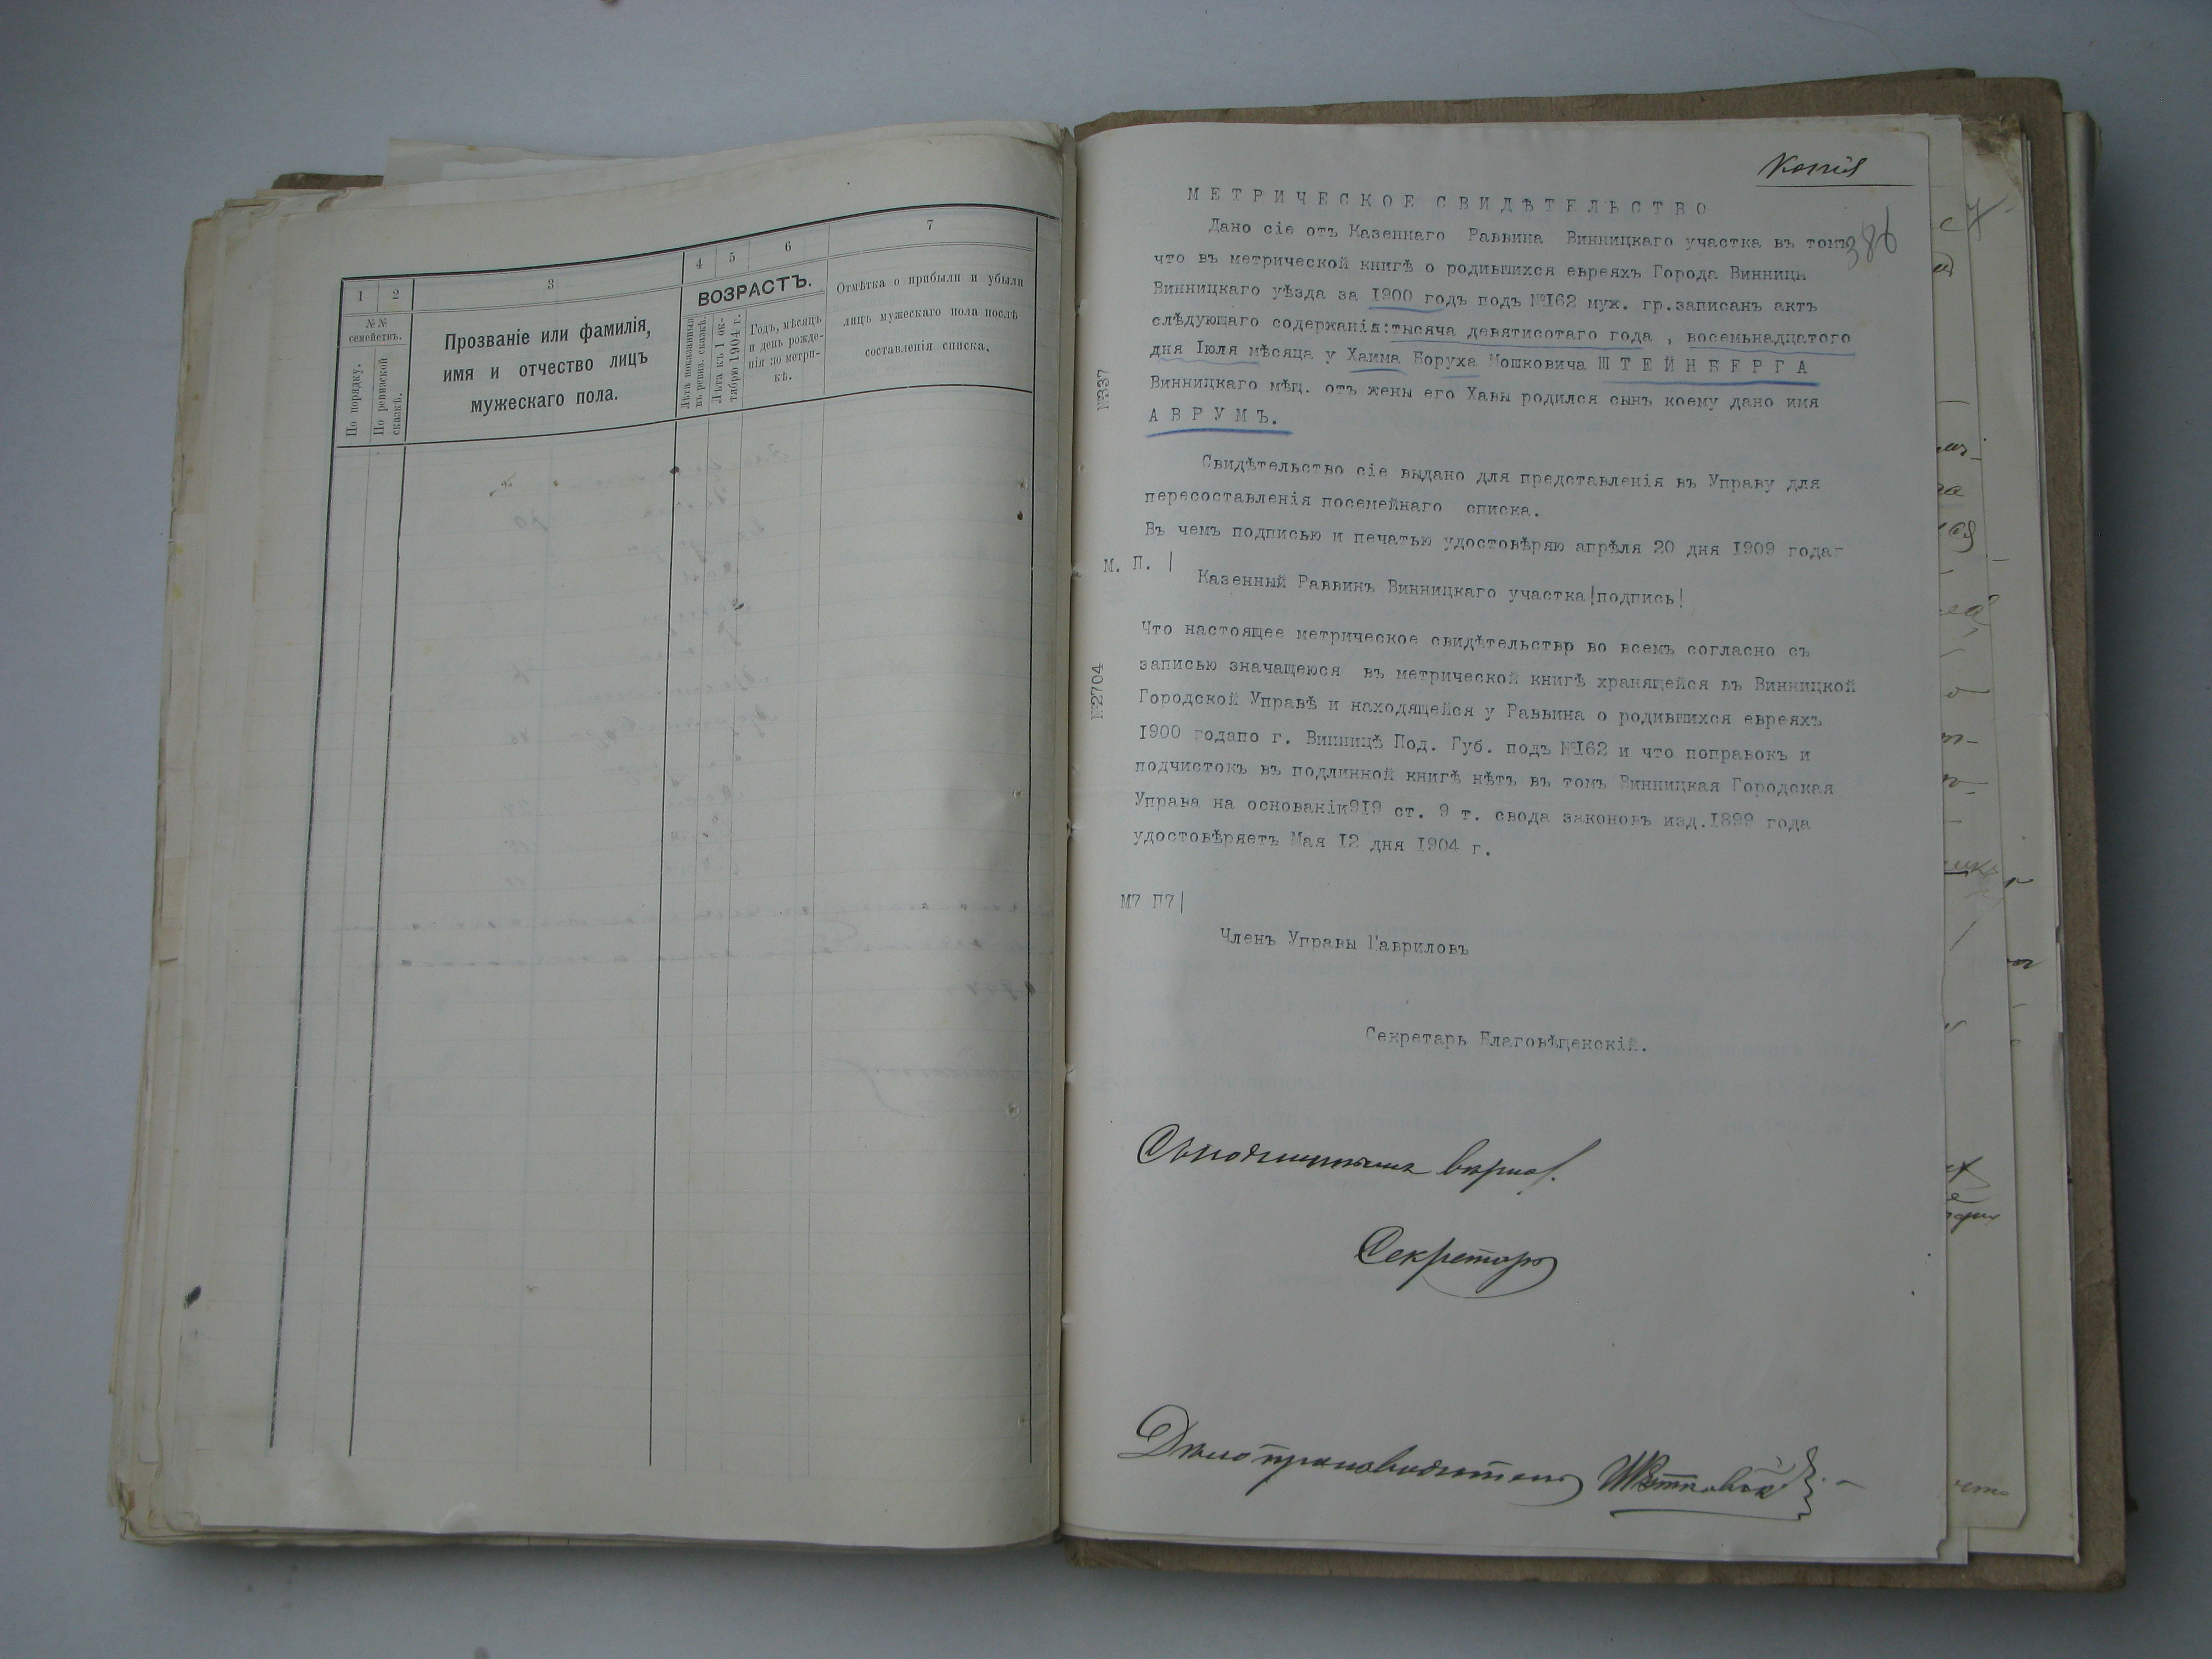 1
2
3
4
5
6
7
№№
семействъ.
По порядку.
По ревизской
сказкѣ.
Прозваніе или фамилія,
имя и отчество лицъ
мужескаго пола.
ВОЗРАСТЪ.
Лѣта показанныя
въ ревиз. сказкѣ.
Лѣта къ 1 ок-
тября 1904 г.
Годъ, мѣсяцъ
и день рожде-
нія по метри-
кѣ.
Отмѣтка о прибыли и убыли
лицъ мужескаго пола послѣ
составленія списка.
Копія
386
МЕТРИЧЕСКОЕ СВИДѢТЕЛЬСТВО
Дано сіе отъ Казеннаго Раввина Винницкаго участка въ томъ
что въ метрической книгѣ о родившихся евреяхъ Города Винницы
Винницкаго уѣзда за 1900 годъ подъ №162 муж. гр.записанъ актъ
слѣдующаго содержанія:тысяча девятисотаго года , восемьнадцатого
дня Іюля мѣсяца у Хаима Боруха Мошковича ШТЕЙНБЕРГА
Винницкаго мѣщ. отъ жены его Хавы родился сынъ коему дано имя
АВРУМЪ.
№337
Свидѣтельство сіе выдано для представленія въ Управу для
пересоставленія посемейнаго списка.
Въ чемъ подписью и печатью удостовѣряю апрѣля 20 дня 1909 годаг
М. П. |
Казенный Раввинъ Винницкаго участка!подпись!
Что настоящее метрическое свидѣтельствр во всемъ согласно съ
записью значащеюся въ метрической книгѣ хранящейся въ Винницкой
Городской Управѣ и находящейся у Раввина о родившихся евреяхъ
1900 годапо г. Винницѣ Под. Губ. подъ №162 и что поправокъ и
подчистокъ въ подлинной книгѣ нѣтъ въ томъ Винницкая Городская
Управа на основаніи919 ст. 9 т. свода законовъ изд.1899 года
удостовѣряетъ Мая 12 дня 1904 г.
№2704
М7 П7|
Членъ Управы Гавриловъ
Секретарь Благовѣщенскій.
Съ подлиннымъ вѣрно.
Секретарь
Дѣлопроизводитель